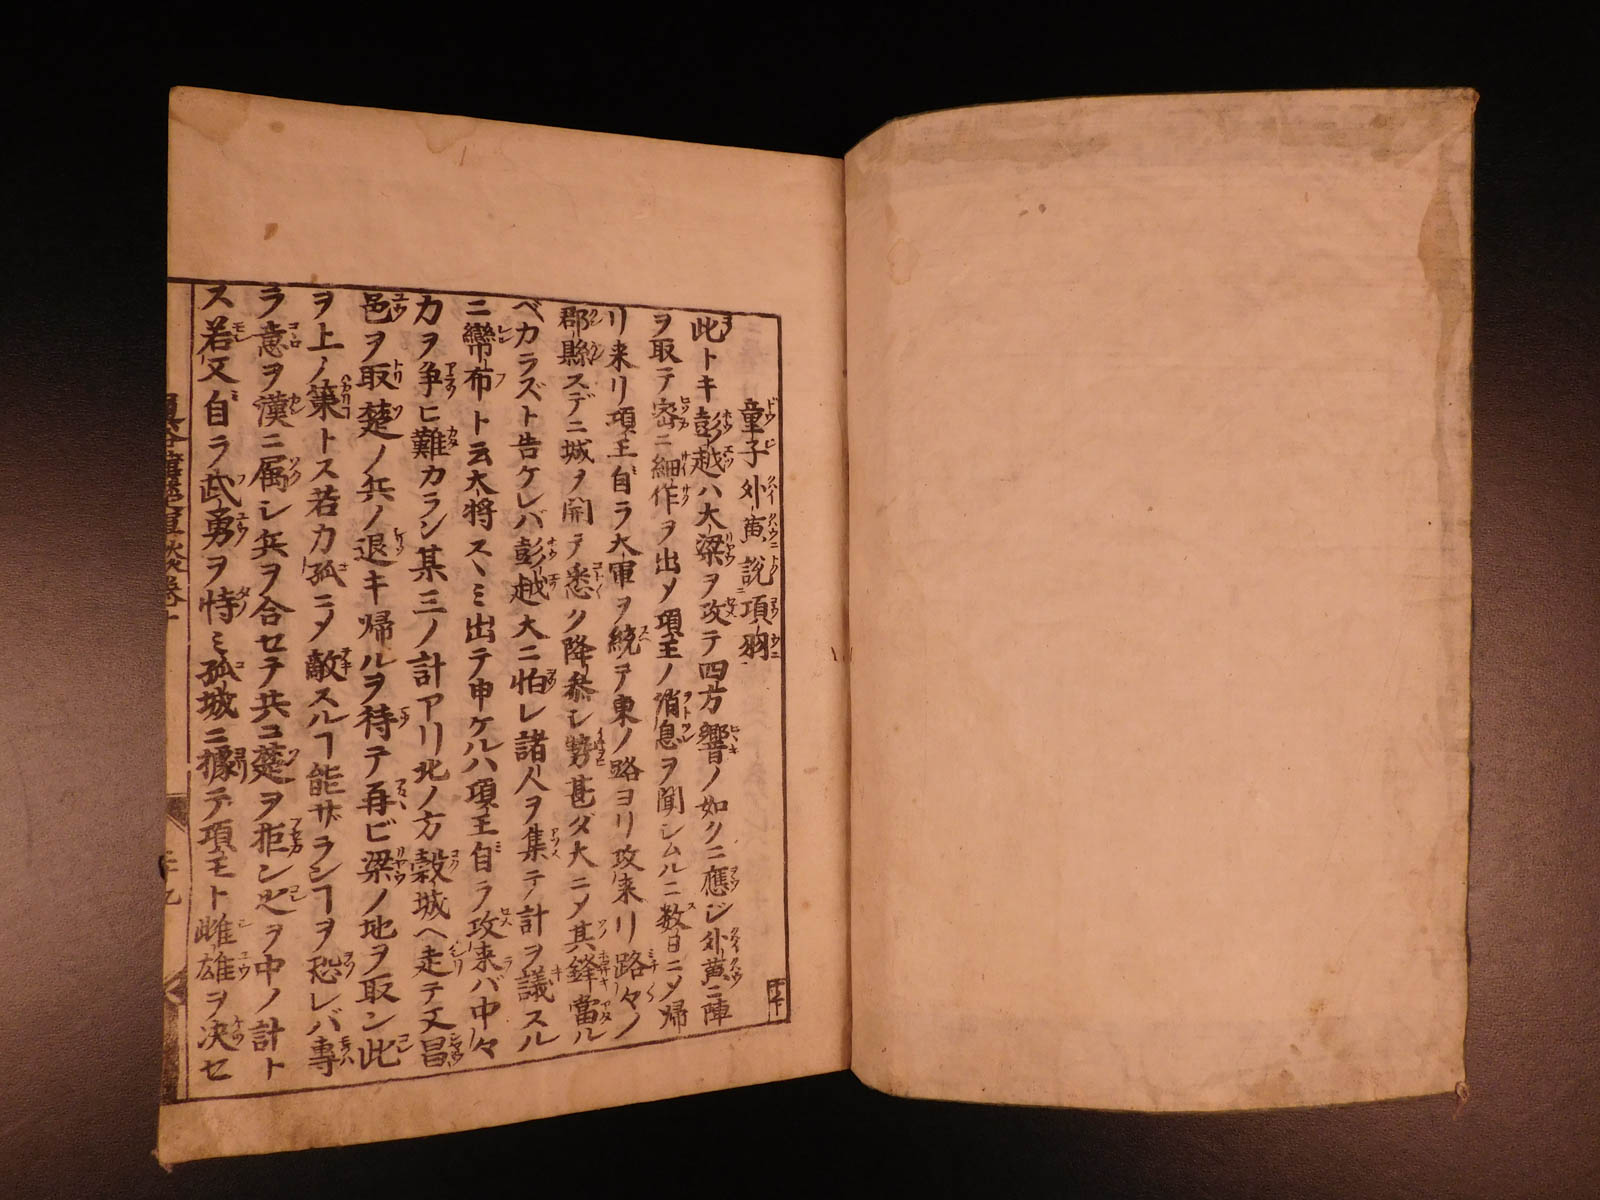 童子外黄説項羽
此トキ彭越ハ大梁ヲ攻テ四方響ノ如クニ應ジ外黄ニ陣
ヲ取テ密ニ細作ヲ出メ項王ノ消息ヲ聞シムルニ数日ニメ帰
リ来リ項王自ラ大軍ヲ統ヲ東ノ路ヨリ攻来リ路々ノ
郡縣スデニ城ヲ開テ悉ク降参シ勢甚ダ大ニメ其鋒當ル
ベカラズト告ケレバ彭越大ニ怕レ諸人ヲ集テ計ヲ議スル
ニ欒布ト云大将スヽミ出テ申ケルハ項王自ラ攻来バ中々
カヲ争ヒ難カラン某三ノ計アリ北ノ方穀城ヘ走テ又昌
邑ヲ取楚ノ兵ノ退キ帰ルヲ待テ再ビ梁ノ地ヲ取ン此
ヲ上ノ策トス若カ孤ニメ敵スルヿ能ザラシヿヲ恐レバ専
ラ意ヲ漢ニ属シ兵ヲ合セテ共コ楚ヲ拒ン是ヲ中ノ計ト
ス若又自ラ武勇ヲ恃ミ孤城ニ據テ項王ト雌雄ヲ决セ